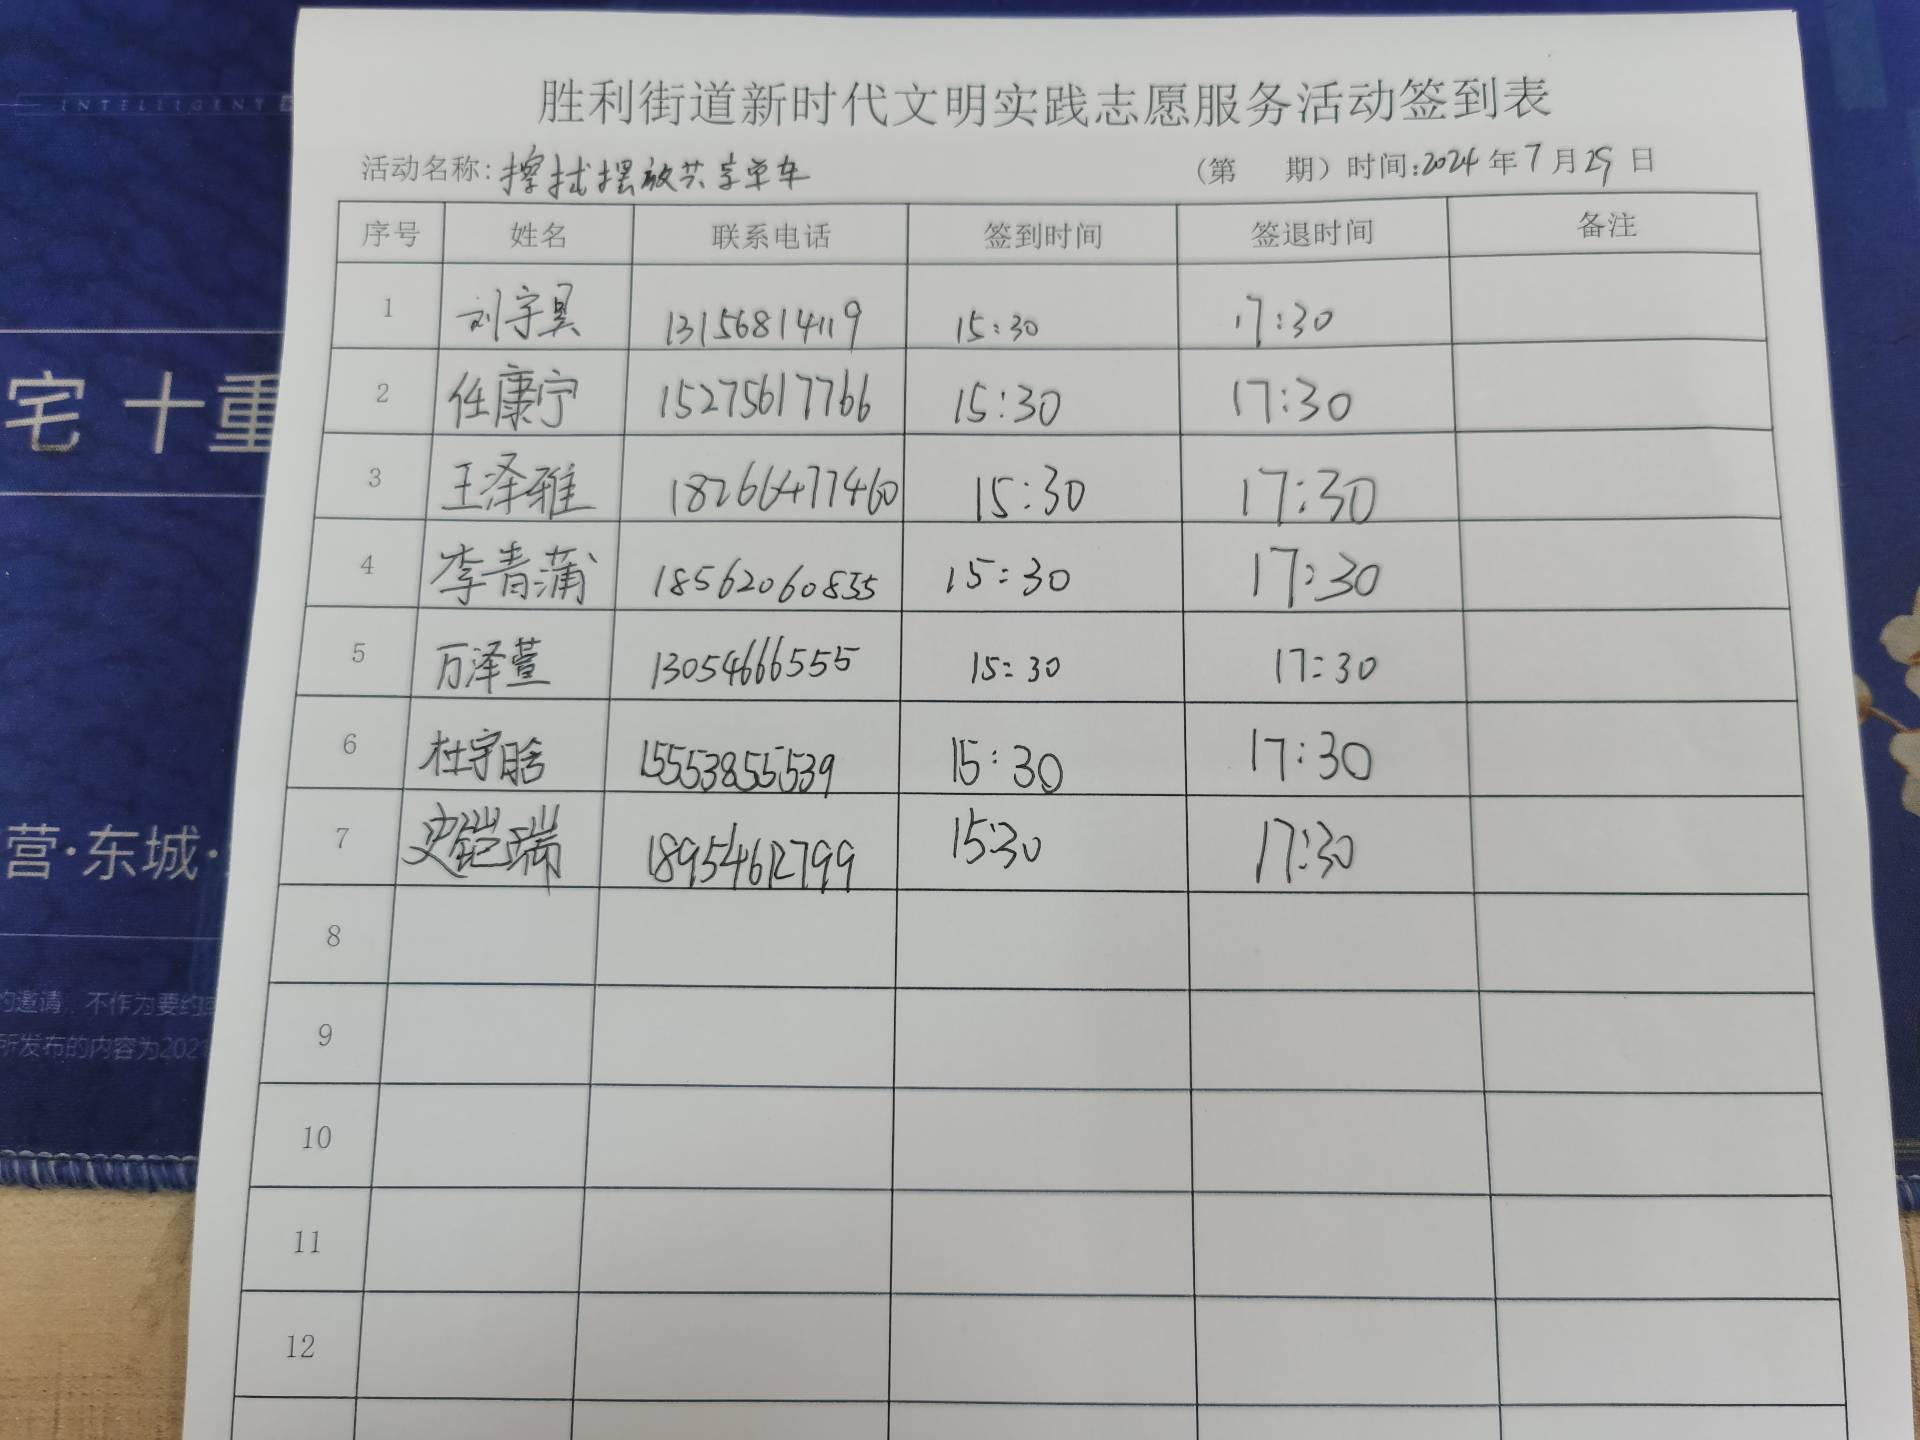 INTELLIGENT
宅 十重
营·东城·
的邀请，不作为要约
所发布的内容为202
胜利街道新时代文明实践志愿服务活动签到表
活动名称：擦拭摆放共享单车 （第 期）时间：2024年7月29日
序号 姓名 联系电话 签到时间 签退时间 备注
1 刘宇昊 13156814119 15:30 17:30
2 任康宁 15275617766 15:30 17:30
3 王泽雅 18266477460 15:30 17:30
4 李青蒲 18562060855 15:30 17:30
5 万泽萱 13054666555 15:30 17:30
6 杜宇晗 15553855539 15:30 17:30
7 史铠瑞 18954612799 15:30 17:30
8
9
10
11
12